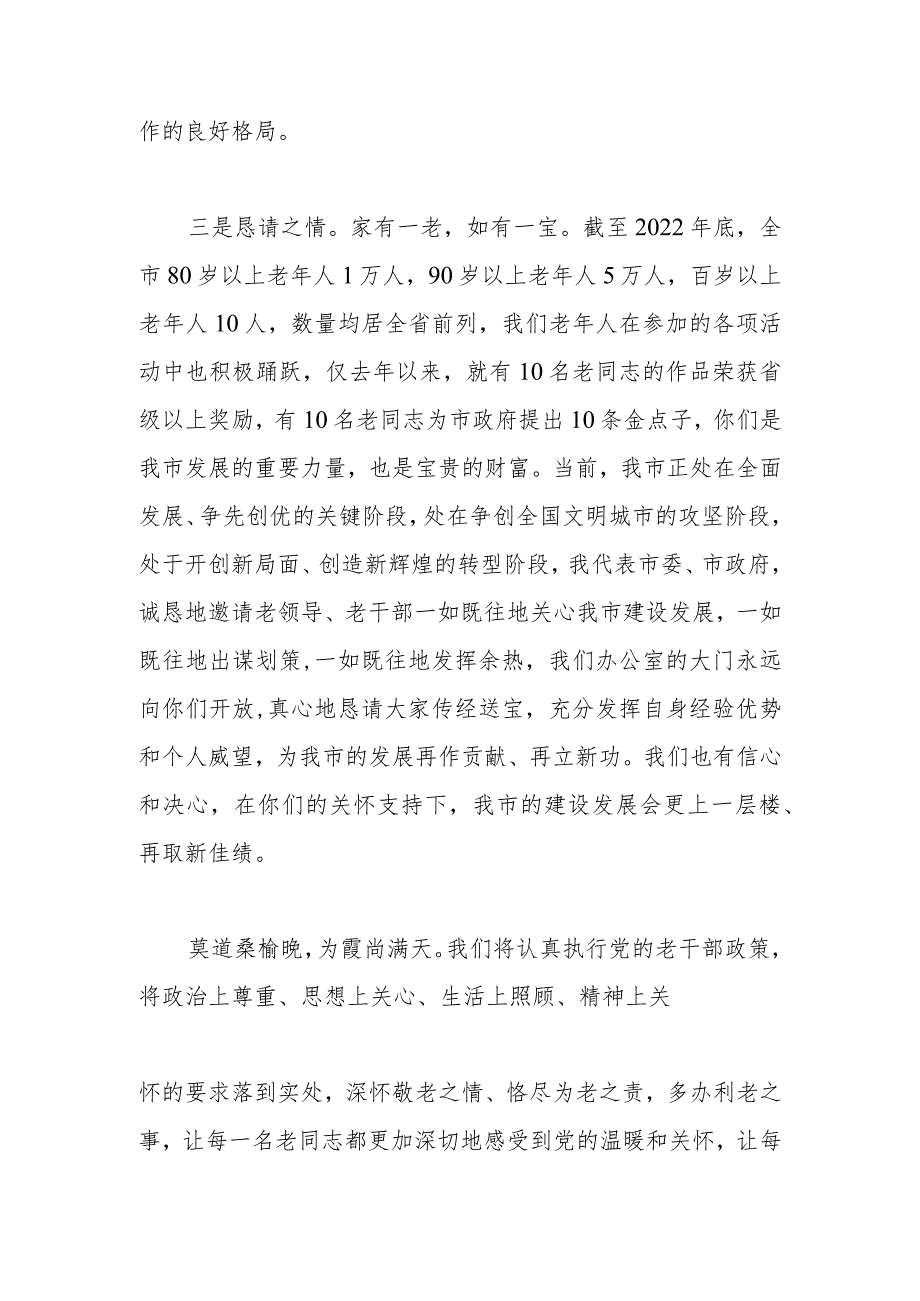 作的良好格局。
三是恳请之情。家有一老，如有一宝。截至2022年底，全
市80岁以上老年人1万人，90岁以上老年人5万人，百岁以上
老年人10人，数量均居全省前列，我们老年人在参加的各项活
动中也积极踊跃，仅去年以来，就有10名老同志的作品荣获省
级以上奖励，有10名老同志为市政府提出10条金点子，你们是
我市发展的重要力量，也是宝贵的财富。当前，我市正处在全面
发展、争先创优的关键阶段，处在争创全国文明城市的攻坚阶段，
处于开创新局面、创造新辉煌的转型阶段，我代表市委、市政府，
诚恳地邀请老领导、老干部一如既往地关心我市建设发展，一如
既往地出谋划策,一如既往地发挥余热，我们办公室的大门永远
向你们开放,真心地恳请大家传经送宝，充分发挥自身经验优势
和个人威望，为我市的发展再作贡献、再立新功。我们也有信心
和决心，在你们的关怀支持下，我市的建设发展会更上一层楼、
再取新佳绩。
莫道桑榆晚，为霞尚满天。我们将认真执行党的老干部政策，
将政治上尊重、思想上关心、生活上照顾、精神上关
怀的要求落到实处，深怀敬老之情、恪尽为老之责，多办利老之
事，让每一名老同志都更加深切地感受到党的温暖和关怀，让每